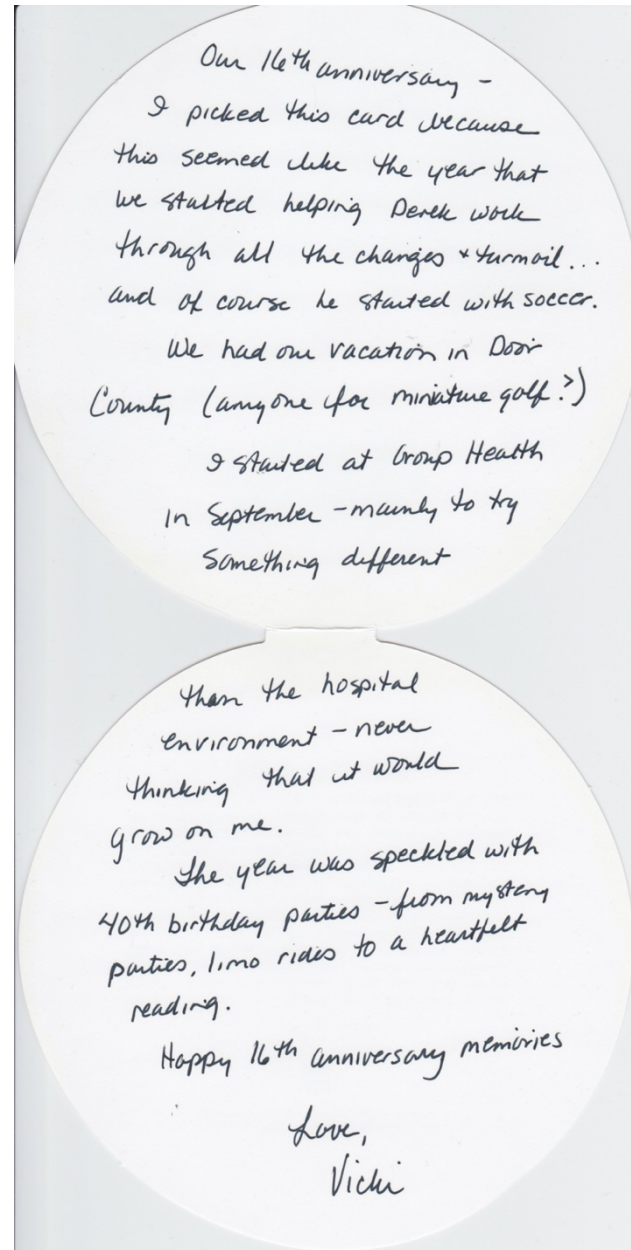 Our 16th anniversary -
I picked this card because
this seemed like the year that
we started helping Derek work
through all the changes + turmoil...
and of course he started with soccer.
We had our vacation in Door
County (anyone for miniature golf?)
I started at Group Health
in September - mainly to try
something different
than the hospital
environment - never
thinking that it would
grow on me.
The year was speckled with
40th birthday parties - from mystery
parties, limo rides to a heartfelt
reading.
Happy 16th anniversary memories
Love,
Vicki